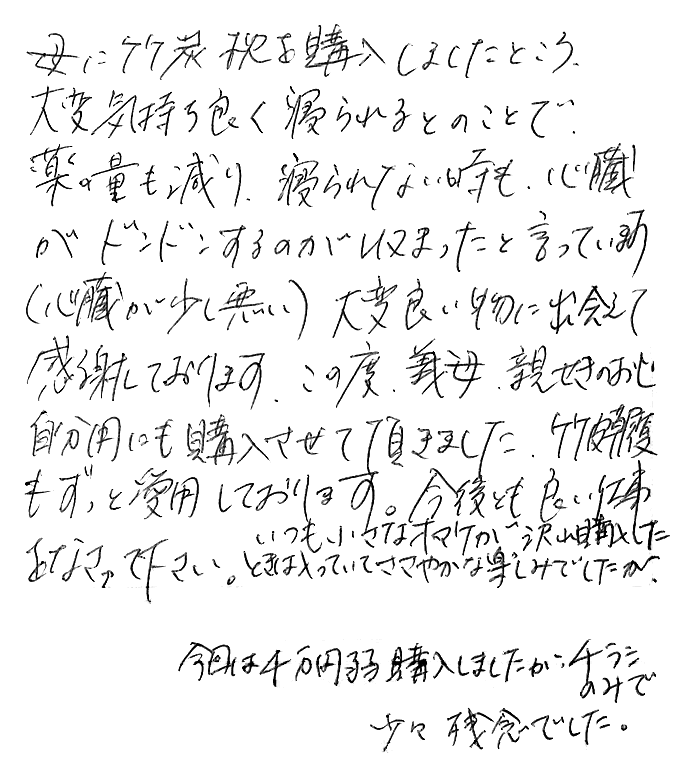 母に竹炭枕を購入しましたところ、
大変気持ち良く寝られるとのことで、
薬の量も減り、寝られない時も、心臓
がドンドンするのが収まったと言っています
(心臓が少し悪い) 大変良い物に出会えて
感謝しております。この度、義母、親せきのおじ
自分用にも購入させて頂きました。竹皮草履
もずっと愛用しております。今後とも良い仕事
をなさって下さい。
いつも小さなオマケが沢山購入した
ときは入っていてささやかな楽しみでしたが、
今回は4万円弱購入しましたが、チラシ
のみで
少々残念でした。